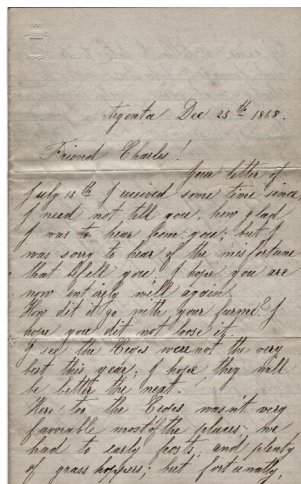 Argenta Dec 25th 1868.
Friend Charles!
Your letter of
July 18th I received some time since,
I need not tell you, how glad
I was to hear from you; but I
was sorry to hear of the misfortune
that befell you. I hope you are
now entirely well again.
How dit it go with your farme? I
hope you dit not loose it.
I see the Crops were not the very
best this year; I hope they will
be better the next.
Here too the Crops wasn't very
favorable most of the places; we
had to early frosts, and plenty
of grasshoppers; but fortunatly,